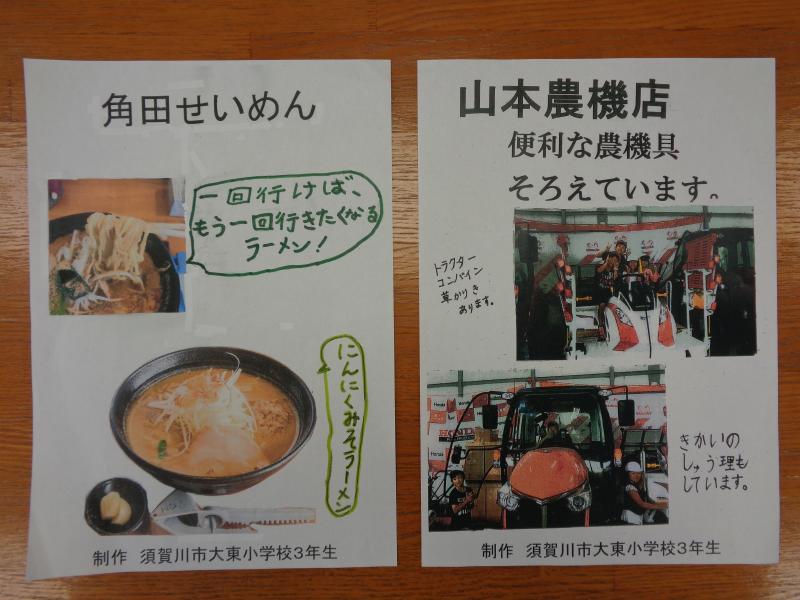 角田せいめん
一回行けば、
もう一回行きたくなる
ラーメン!
にんにくみそラーメン
制作 須賀川市大東小学校3年生
山本農機店
便利な農機具
そろえています。
トラクター
コンバイン
草かりき
あります。
HONDA
Honda
きかいの
しゅう理も
しています。
制作 須賀川市大東小学校3年生